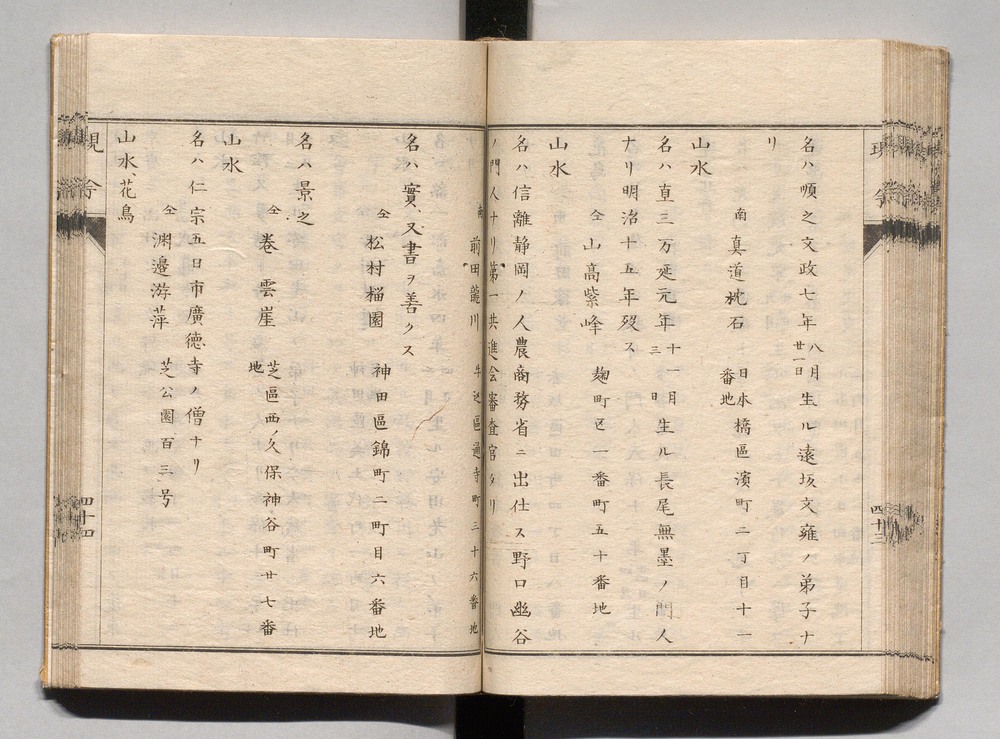 名ハ順之文政七年八月廿一日生ル遠坂文雍ノ弟子ナ
リ
南 真道枕石 日本橋區濱町二丁目十一番地
山水
名ハ直三万延元年十一月三日生ル長尾無墨ノ門人
ナリ明治十五年歿ス
仝 山高紫峰 麹町区一番町五十番地
山水
名ハ信離静岡ノ人農商務省ニ出仕ス野口幽谷
ノ門人ナリ第一共進会審査官タリ
四十三
南 前田 川 牛込區通寺町三十六番地
名ハ實、又書ヲ善クス
仝 松村椔園 神田區錦町二町目六番地
名ハ景之
仝 巻 雲崖 芝區西ノ久保神谷町廿七番地
山水
名ハ仁宗五日市廣徳寺ノ僧ナリ
仝 渊邉游萍 芝公園百三号
山水、花鳥
現今
四十四